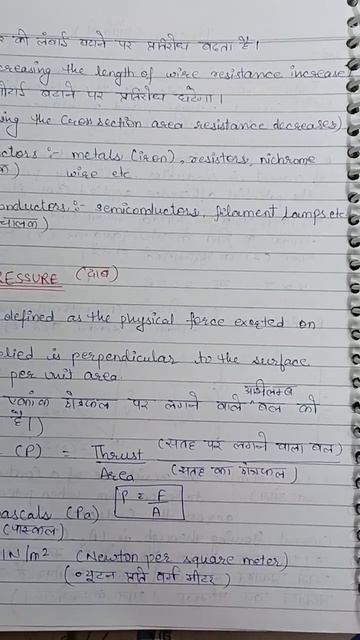 की लंबाई बढाने पर प्रतिरोध बढता है।
creasing the length of wire resistance increase
मोटाई बढाने पर प्रतिरोध घटेगा।
ing the Cross section area resistance decreases)
ctors :- metals (iron), resistors, nichrome
wire etc
onductors :- semiconductors, filament lamps etc
चालक)
RESSURE (दाब)
defined as the physical force exerted on
plied is perpendicular to the surface
per unit area.
अभिलम्ब
एकांक क्षेत्रफल पर लगने वाले बल को
है।)
(P) = Thrust (सतह पर लगने वाला बल)
Area (सतह का क्षेत्रफल)
P = F
A
ascals (Pa)
(पास्कल)
1N/m² (Newton per square meter)
(न्यूटन प्रति वर्ग मीटर)